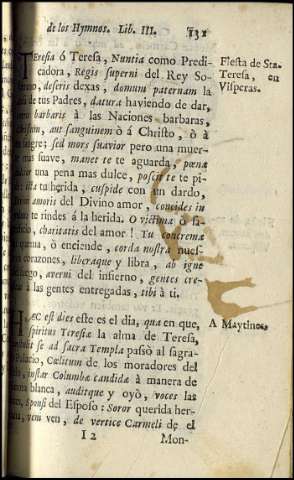 de los Hymnos. Lib. III. 131
TEresia ó Teresa, Nuntia como Predi-
cadora, Regis superni del Rey So-
deseris dexas, domum paternam la
de tus Padres, datura haviendo de dar,
barbaris à las Naciones barbaras,
aut sanguinem ò á Christo, ò à
sangre; sed mors suavior pero una muer-
te mas suave, manet te te aguarda, pœnæ
una pena mas dulce, poscit te te pi-
tu herida, cuspide con un dardo,
amoris del Divino amor, concides in
te rindes á la herida. O victima ò sa-
charitatis del amor! Tu concrema
quema, ò enciende, corda nostra nues-
corazones, liberaque y libra, ab igne
fuego, averni del infierno, gentes cre-
à las gentes entregadas, tibi à ti.
HÆc est dies este es el dia, qua en que,
spiritus Teresiæ la alma de Teresa,
se ad sacra Templa passò al sagra-
Palacio, Cœlitum de los moradores del
instar Columbæ candidæ à manera de
blanca, auditque y oyò, voces las
Sponsi del Esposo: Soror querida her-
vem ven, de vertice Carmeli de el
I 2 Mon-
Fiesta de Sta.
Teresa, en
Visperas.
A Maytines.